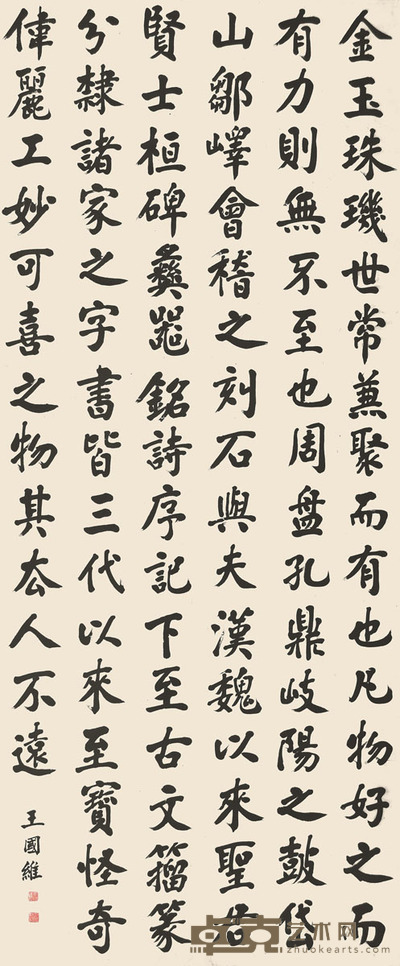 金玉珠璣世常兼聚而有也凡物好之而
有力則無不至也周盘孔鼎岐陽之鼓岱
山鄒嶧會稽之刻石與夫漢魏以來聖君
賢士桓碑彝器銘詩序記下至古文籀篆
分隸諸家之字書皆三代以來至寶怪奇
偉麗工妙可喜之物其去人不遠
王國維
艺术网
zhuokearts.com